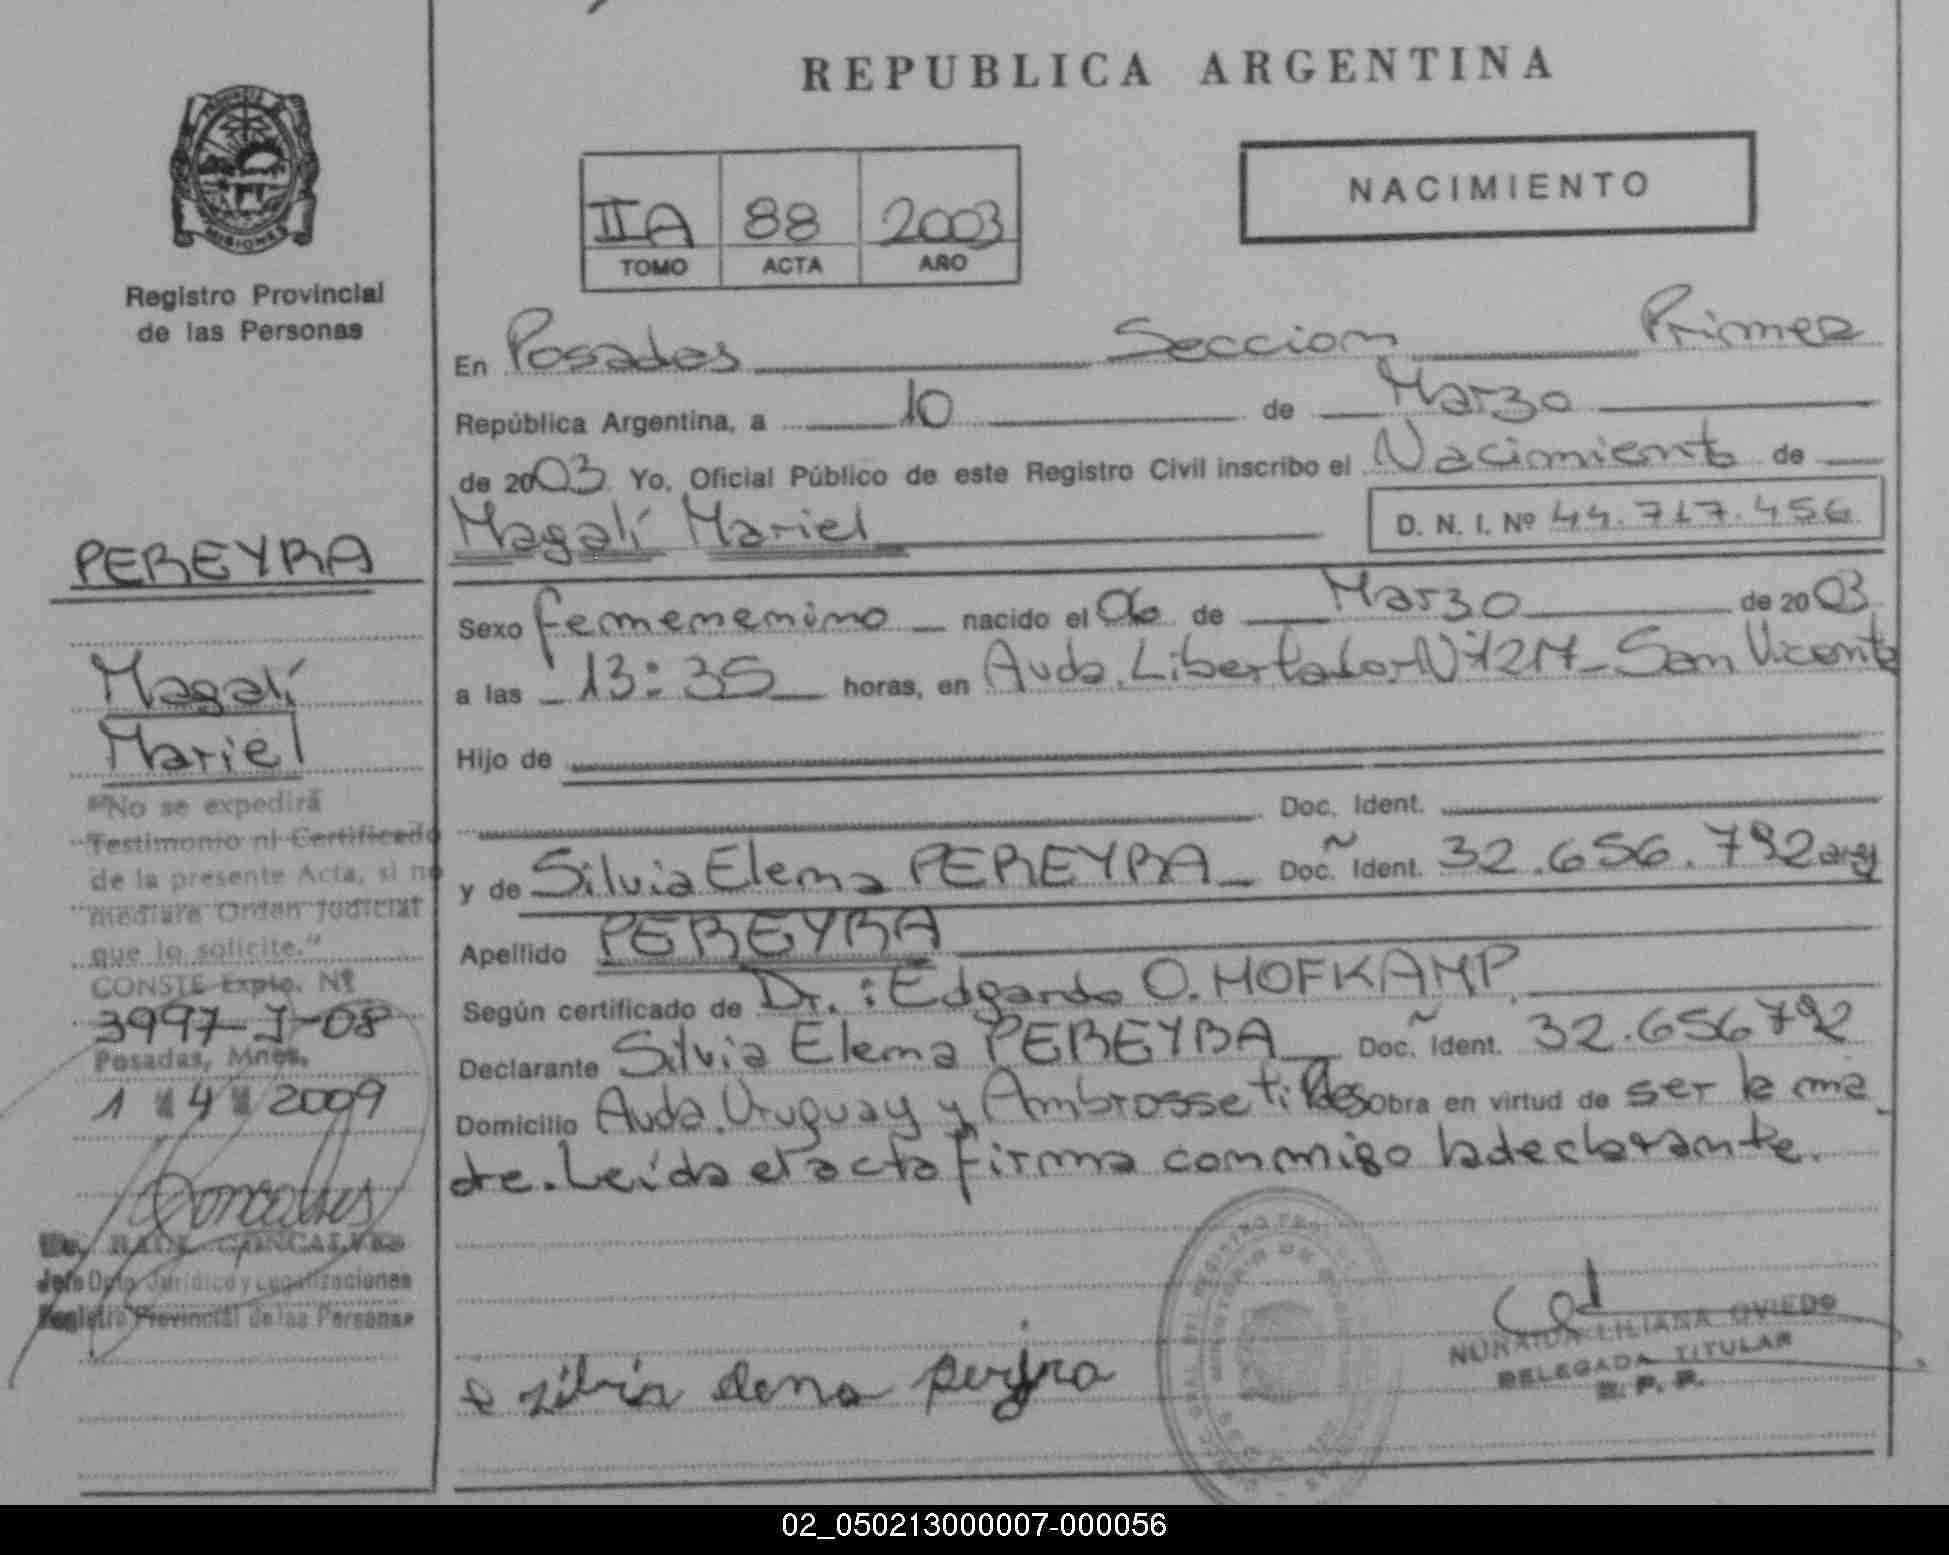 REPUBLICA ARGENTINA
MISIONES
Registro Provincial
de las Personas
IIA 88 2003
TOMO ACTA AÑO
NACIMIENTO
En Posadas Seccion Primera
República Argentina, a 10 de Marzo
de 2003 Yo, Oficial Público de este Registro Civil inscribo el Nacimiento de
Magalí Mariel
D. N. I. Nº 44.717.456
Sexo femenenino nacido el 06 de Marzo de 2003
a las 13:35 horas, en Avda. Libertador Nº 1217 - San Vicente
Hijo de
Doc. Ident.
y de Silvia Elena PEREYRA Doc. Ident. 32.656.792 arg
Apellido PEREYRA
Según certificado de Dr.: Edgardo O. HOFKAMP.
Declarante Silvia Elena PEREYRA Doc. Ident. 32.656792
Domicilio Avda. Uruguay y Ambrossetti Pdas Obra en virtud de ser la ma
dre. Leída el acta firma conmigo la declarante.
zilvia elena pereyra
NORAIDA LILIANA OVIEDO
DELEGADA TITULAR
R. P. P.
PEREYRA
Magalí
Mariel
"No se expedirá
Testimonio ni Certificado
de la presente Acta, si no
mediare Orden Judicial
que lo solicite."
CONSTE Expte. Nº
3997-J-08
Posadas, Mnes.
1 4 2009
Dr. RAUL GONCALVES
Jefe Dpto. Jurídico y Legalizaciones
Registro Provincial de las Personas
02_050213000007-000056